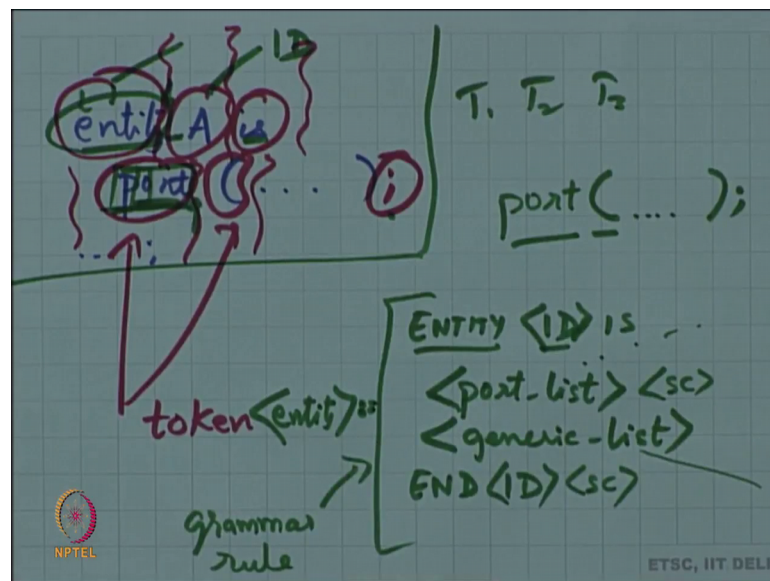 ID
entity A is
port ( . . . . ) ;
. . . ;
T1 T2 T3
port ( .... ) ;
token
<entity> ::
ENTITY <ID> IS . . .
<port-list> <sc>
<generic-list>
END <ID> <sc>
grammar
rule
NPTEL
ETSC, IIT DEL